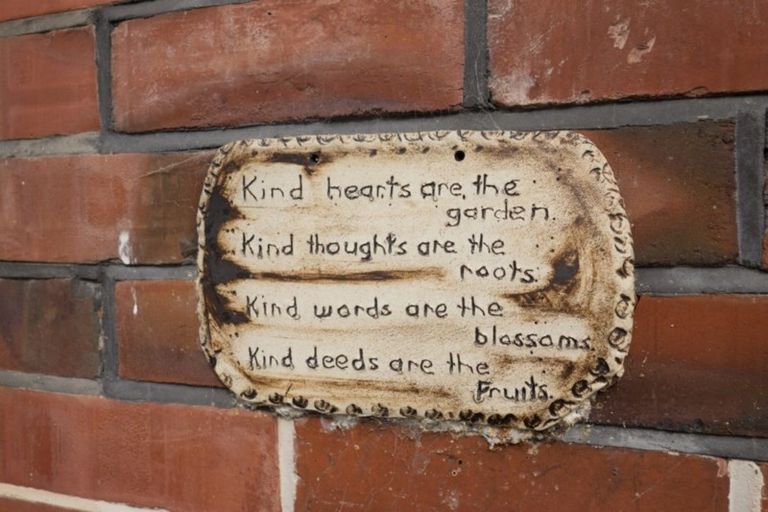 Kind hearts are, the
garden.
Kind thoughts are the
roots.
Kind words are the
blossoms.
Kind deeds are the
Fruits.